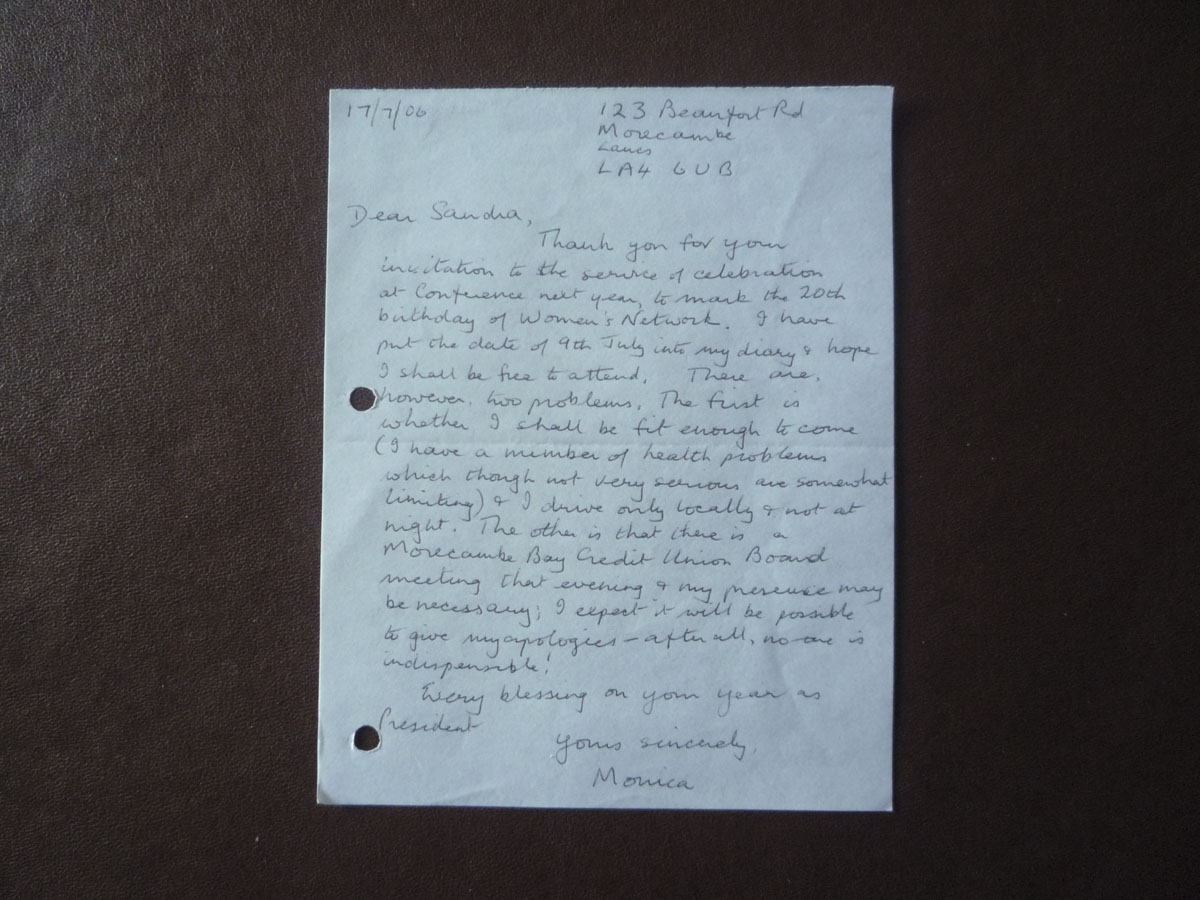 17/7/06
123 Beaufort Rd
Morecambe
Lancs
LA4 6UB
Dear Sandra,
Thank you for your
invitation to the service of celebration
at Conference next year, to mark the 20th
birthday of Women's Network. I have
put the date of 9th July into my diary & hope
I shall be free to attend. There are,
however, two problems. The first is
whether I shall be fit enough to come
(I have a number of health problems
which though not very serious are somewhat
limiting) & I drive only locally & not at
night. The other is that there is a
Morecambe Bay Credit Union Board
meeting that evening & my presence may
be necessary; I expect it will be possible
to give my apologies – after all, no-one is
indispensible!
Every blessing on your year as
President
Yours sincerely,
Monica